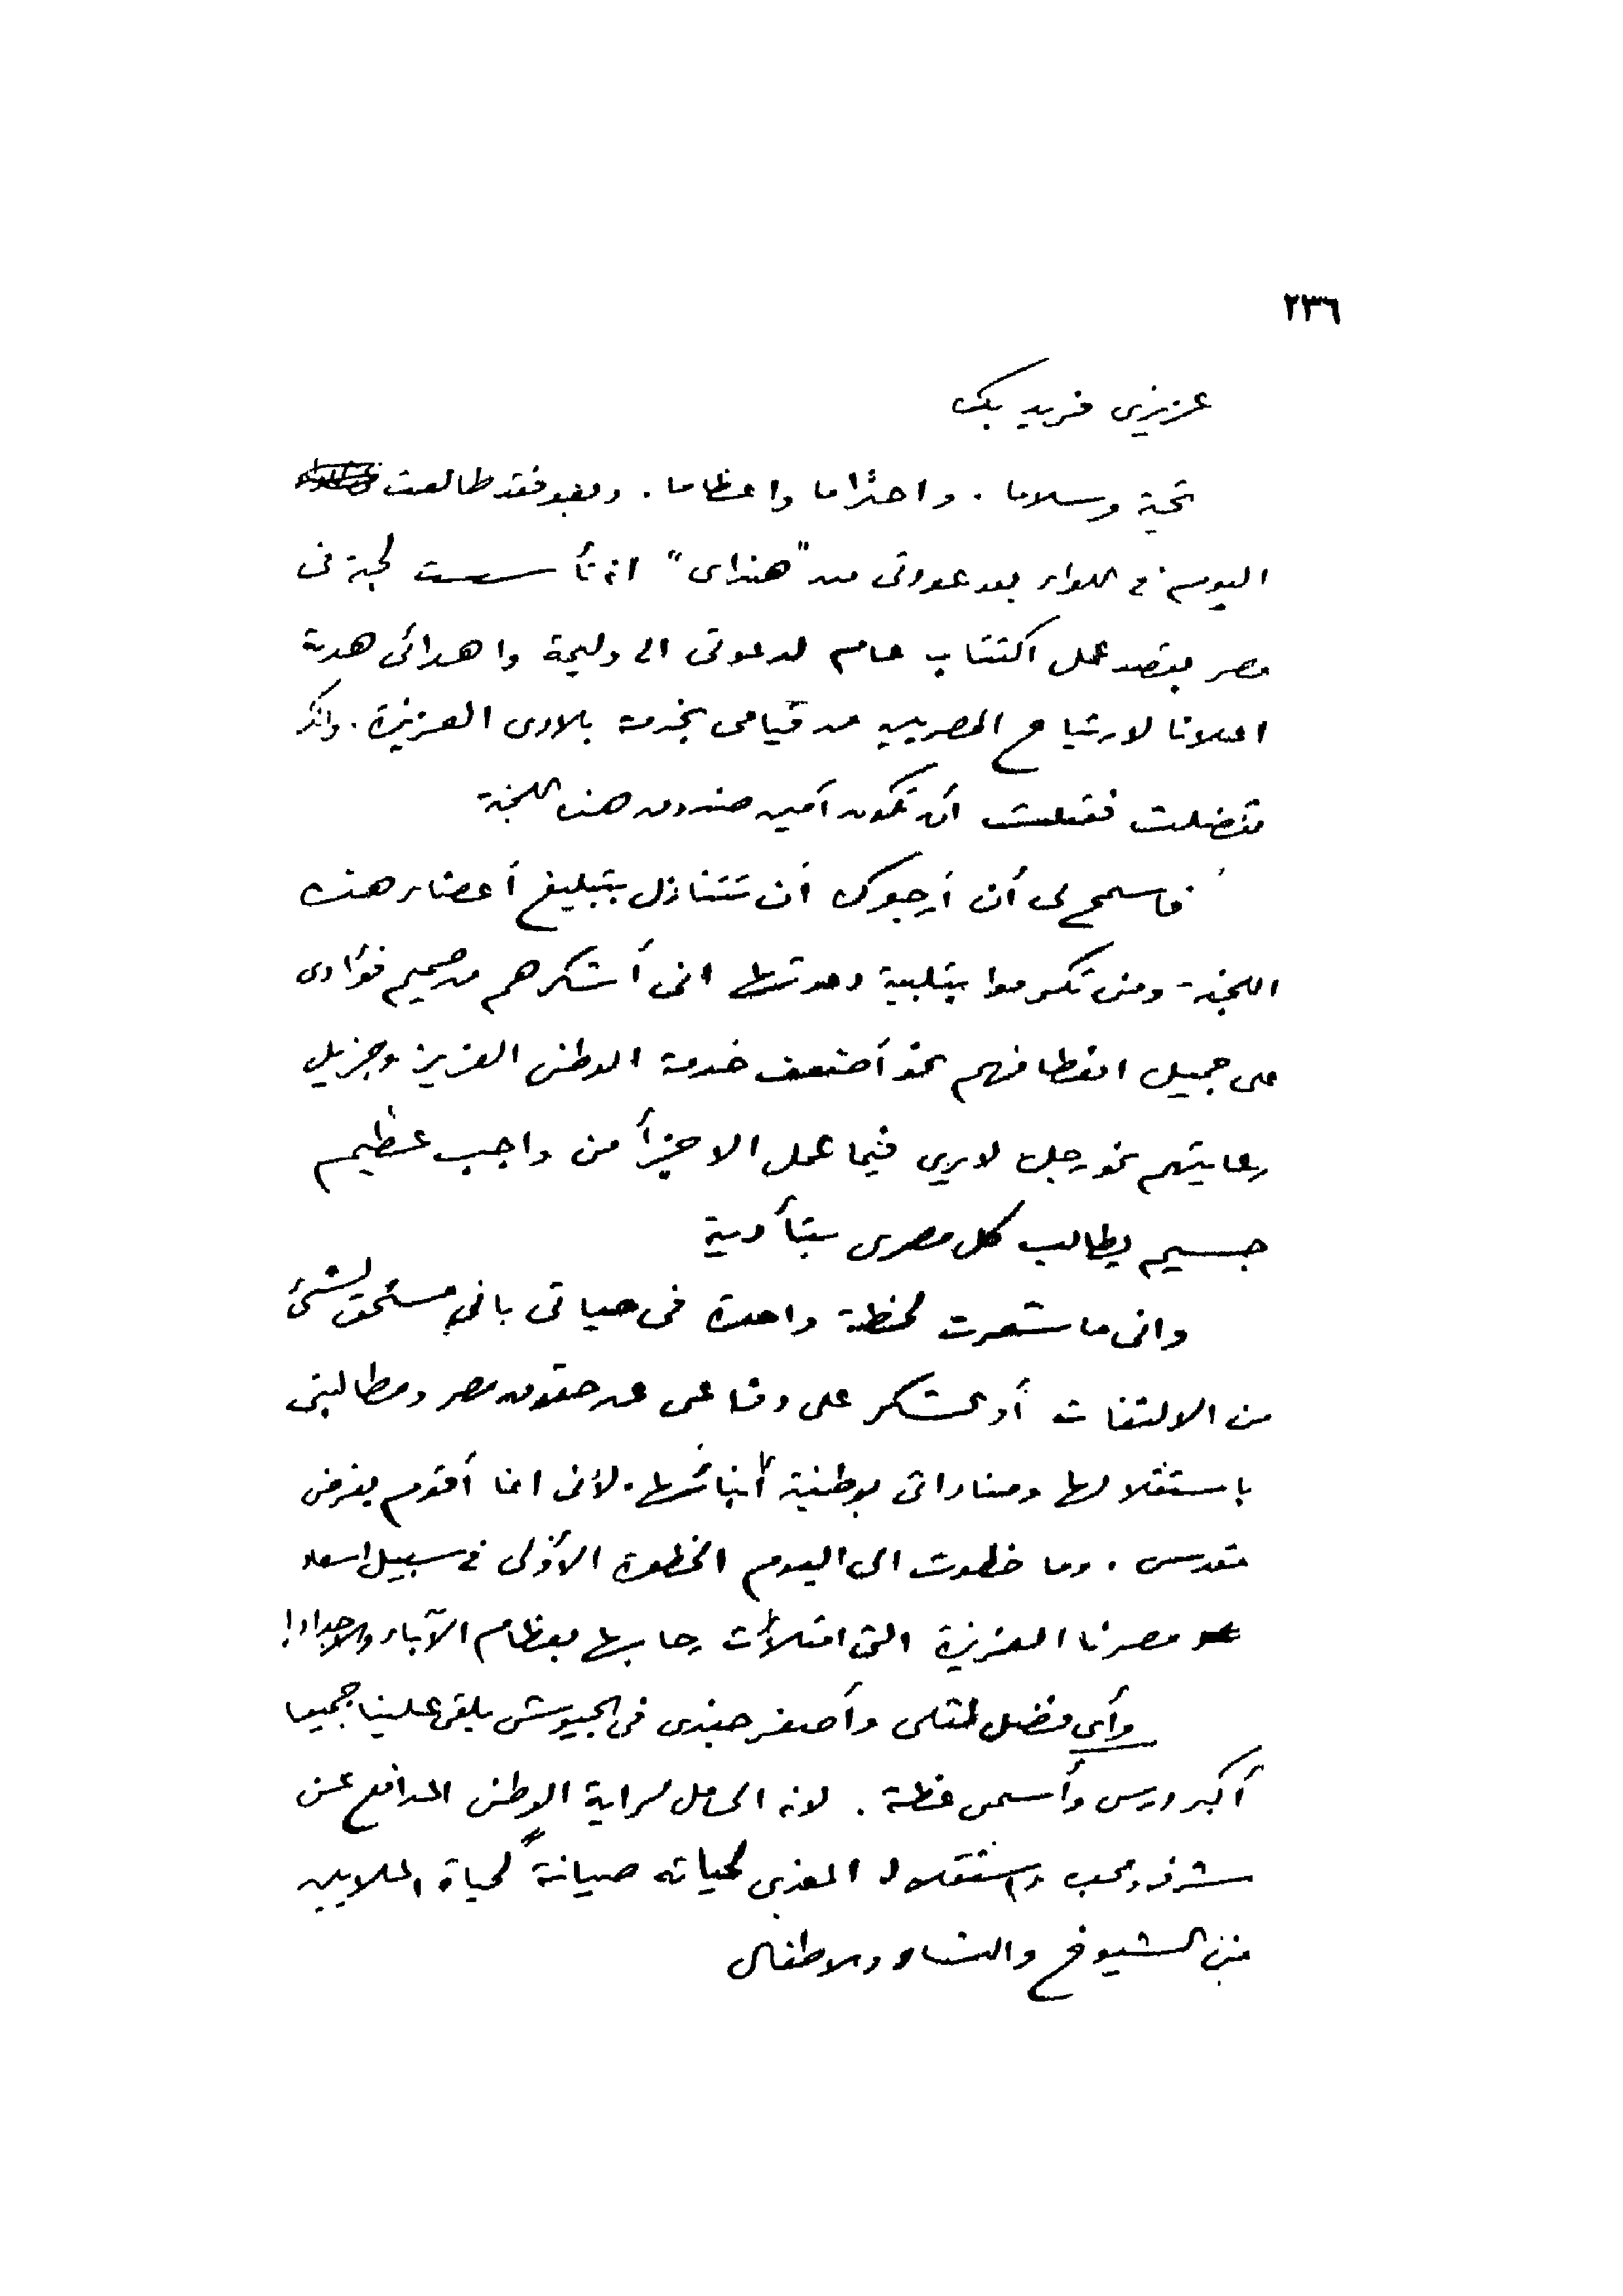 ٢٣٦
عزيزي فريد بك
تحية وسلاما . واحتراما واعظاما . وبعد فقد طالعت
اليوم في اللواء بعد عودتى من "هنداى" انه تأسست لجنة فى
مصر بقصد عمل اكتتاب عام لدعوتى الى وليمة واهدائى هدية
اعلانا لارتياح المصريين من قيامى بخدمة بلادى العزيزة . وانكم
تفضلتم فقبلتم أن تكون أمين صندوق هذه اللجنة
فاسمح لى أن أرجوك أن تتنازل بتبليغ أعضاء هذه
اللجنة ومن تكرموا بتلبية دعوتها انى أشكرهم من صميم فؤادى
على جميل انعطافهم نحو أضعف خدمة الوطن العزيز وجزيل
رعايتهم نحو رجل لا يرى فيما عمل الا جزأ من واجب عظيم
جسيم يطالب كل مصرى بتأدية
وانى ما شعرت لحظة واحدة فى حياتى بانى مستحق لشئ
من الالتفات أو الشكر على دفاعى عن حقوق مصر ومطالبتى
باستقلالها ومناداتى بوطنية أبنائها . لأنى انما أقوم بفرض
مقدس . وما خطوت الى اليوم الخطوة الأولى فى سبيل اسعاد
مصرنا العزيزة التى امتلأت رحابها بعظام الآباء والاجداد !
وأى فضل لمثلى وأصغر جندى فى الجيوش يلقى علينا جميعا
أكبر درس وأسمى عظة . لانه الحامل لراية الوطن المدافع عن
شرف واستقلال المفدى لحياته صيانةً لحياة الملايين
من الشيوخ والنساء والاطفال